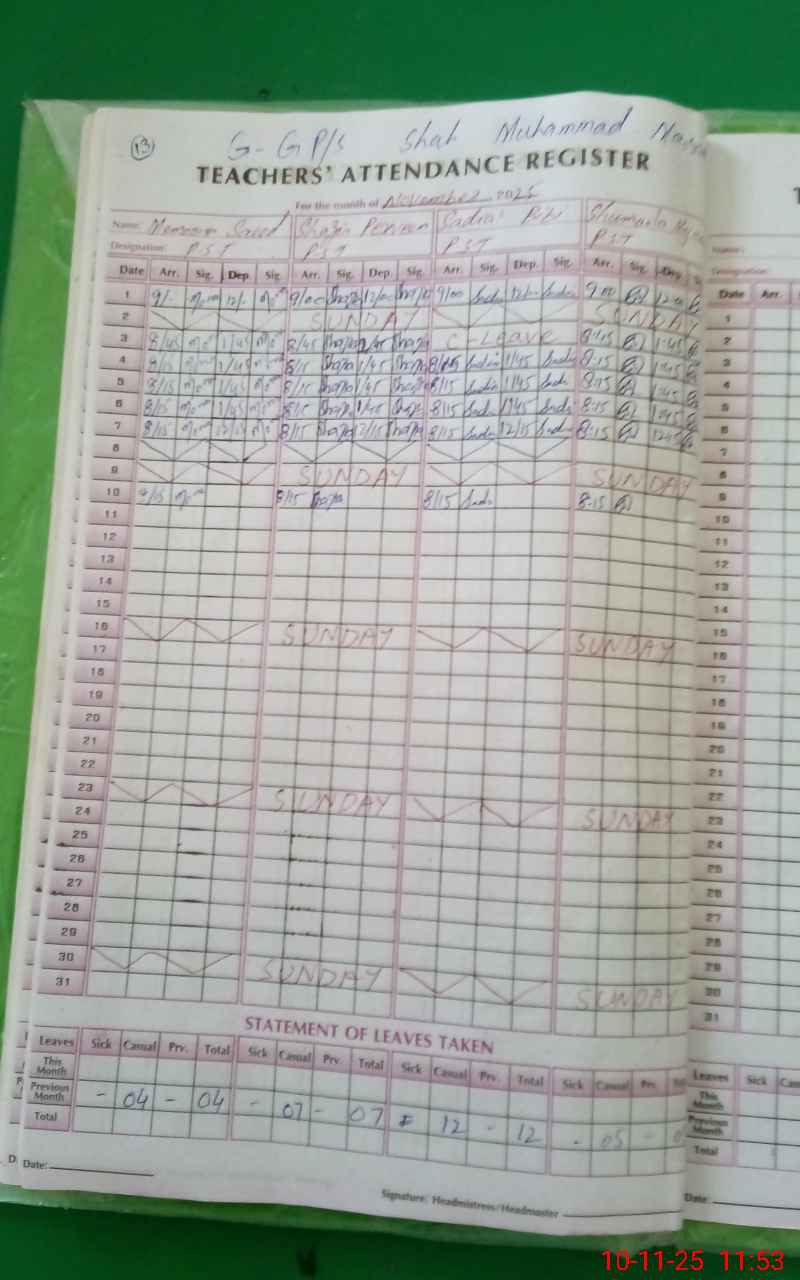 13
G-GP/S Shah Muhammad
TEACHERS' ATTENDANCE REGISTER
For the month of November 2025
Name: Saeed Shazia Perveen Sadia Bibi Shumaila
Designation: P.S.T P.S.T P.S.T P.S.T
Date Arr. Sig. Dep Sig. Arr. Sig. Dep. Sig. Arr. Sig. Dep. Sig. Arr. Sig. Dep.
1 9/- 12/- 9/00 12/00 9/00 12/- 9:00 12:00
2 SUNDAY SUNDAY
3 8/45 1/45 8/45 1/45 C-Leave 8:15 1:45
4 8/15 1/45 8/15 1/45 8/15 1/45 8:15 1:45
5 8/15 1/45 8/15 1/45 8/15 1/45 8:15 1:45
6 8/15 1/45 8/15 1/45 8/15 1/45 8:15 1:45
7 8/15 12/15 8/15 12/15 8/15 12/15 8:15 12:15
8
9 SUNDAY SUNDAY
10 8/15 8/15 8/15 8:15
11
12
13
14
15
16 SUNDAY SUNDAY
17
18
19
20
21
22
23 SUNDAY SUNDAY
24
25
26
27
28
29
30 SUNDAY SUNDAY
31
STATEMENT OF LEAVES TAKEN
Leaves Sick Casual Prv. Total Sick Casual Prv. Total Sick Casual Prv. Total Sick Casual Prv.
This Month
Previous Month - 04 - 04 - 07 - 07 - 12 - 12 - 05 -
Total
Date:
Signature: Headmistress/Headmaster
Name:
Designation:
Date Arr.
1
2
3
4
5
6
7
8
9
10
11
12
13
14
15
16
17
18
19
20
21
22
23
24
25
26
27
28
29
30
31
Leaves Sick
This Month
Previous Month
Total
Date:
10-11-25 11:53